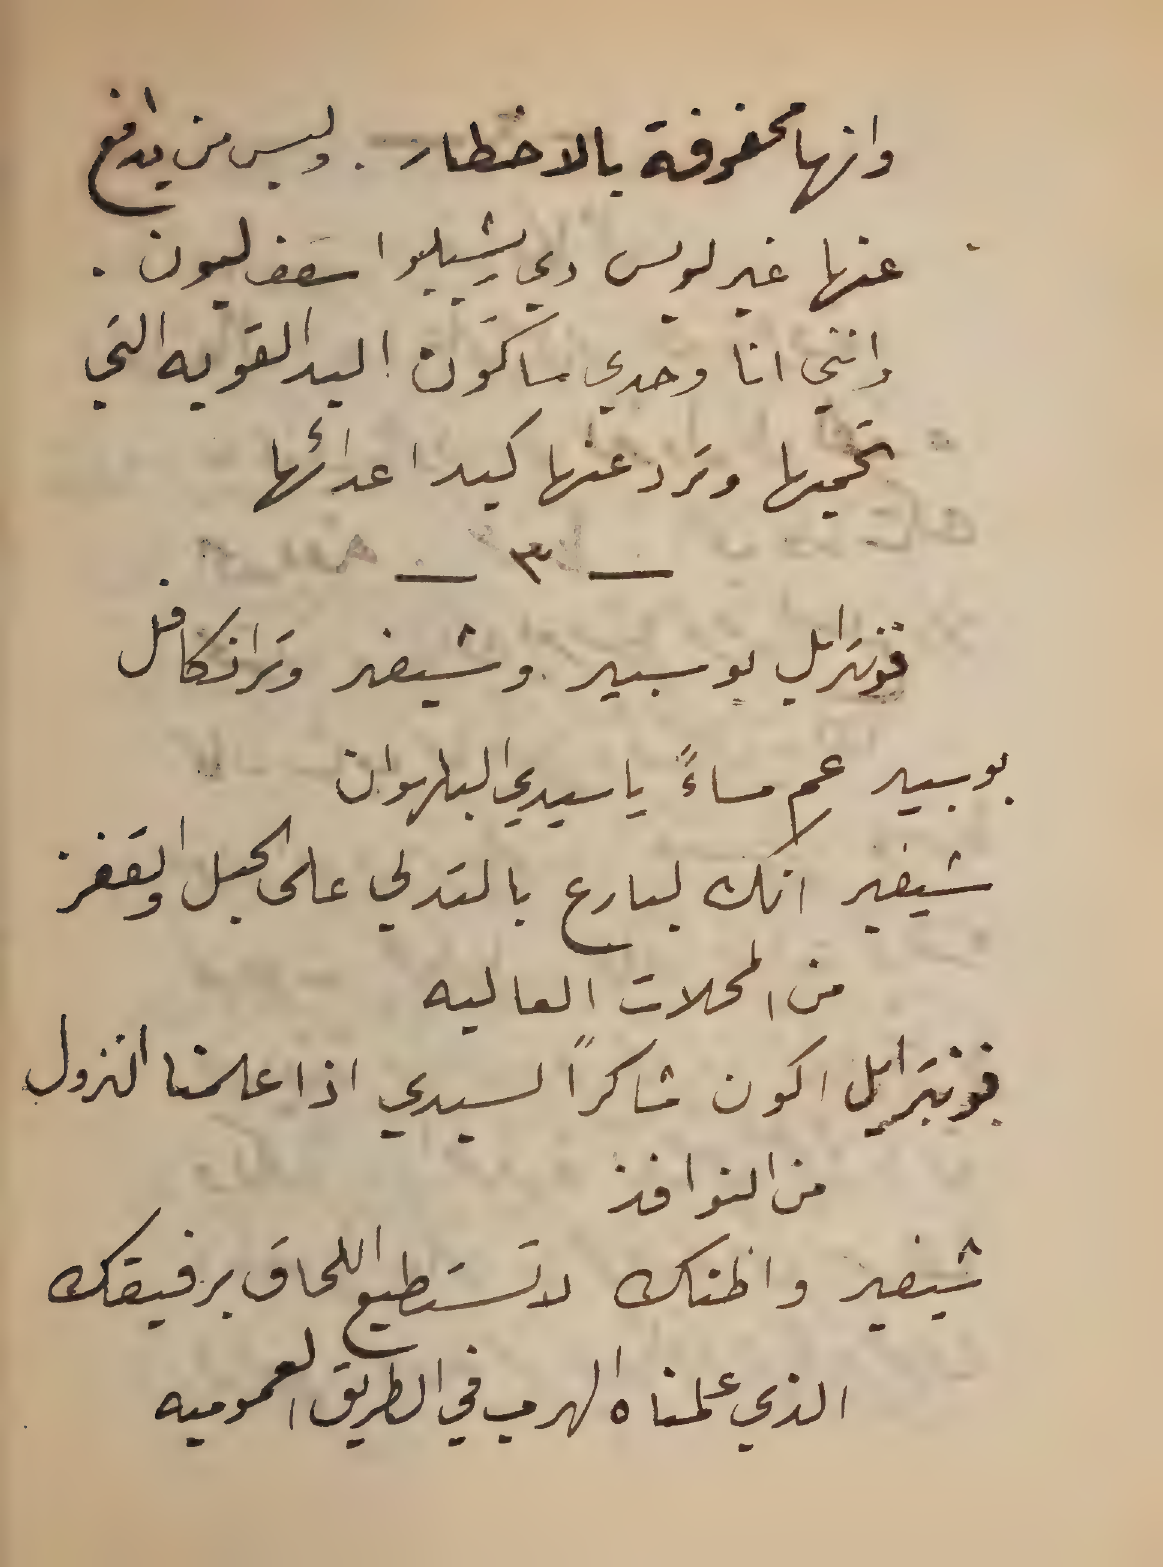 وانها محفوفة بالاخطار . وليس من يدافع
عنها غير لويس دي ريشيليو اسقف ليون .
وانني انا وحدي ساكون اليد القويه التي
تحميها وترد عنها كيد اعدائها
— ٣ —
فونترايل بوسيير . وشيفير وترانكافل
بوسيير عم مساءً يا سيدي البلهوان
شيفير انك لبارع بالتدلي على الحبل والقفز
من المحلات العاليه
فونترايل اكون شاكراً لسيدي اذا علمنا النزول
من النوافذ
شيفير واظنك لا تستطيع اللحاق برفيقك
الذي علمناه الهرب في الطريق العموميه